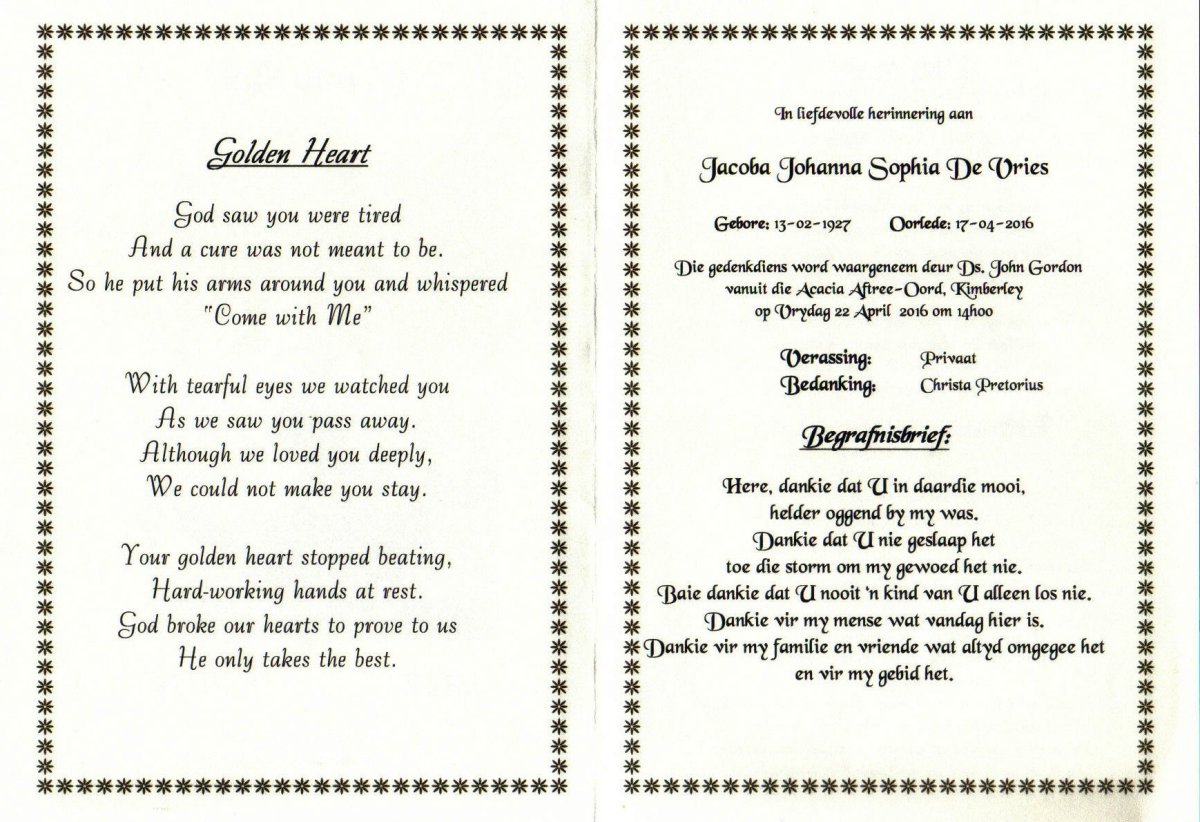 Golden Heart
God saw you were tired
And a cure was not meant to be.
So he put his arms around you and whispered
"Come with Me"
With tearful eyes we watched you
As we saw you pass away.
Although we loved you deeply,
We could not make you stay.
Your golden heart stopped beating,
Hard-working hands at rest.
God broke our hearts to prove to us
He only takes the best.
In liefdevolle herinnering aan
Jacoba Johanna Sophia De Vries
Gebore: 13-02-1927 Oorlede: 17-04-2016
Die gedenkdiens word waargeneem deur Ds. John Gordon
vanuit die Acacia Aftree-Oord, Kimberley
op Vrydag 22 April 2016 om 14h00
Verassing: Privaat
Bedanking: Christa Pretorius
Begrafnisbrief:
Here, dankie dat U in daardie mooi,
helder oggend by my was.
Dankie dat U nie geslaap het
toe die storm om my gewoed het nie.
Baie dankie dat U nooit 'n kind van U alleen los nie.
Dankie vir my mense wat vandag hier is.
Dankie vir my familie en vriende wat altyd omgegee het
en vir my gebid het.